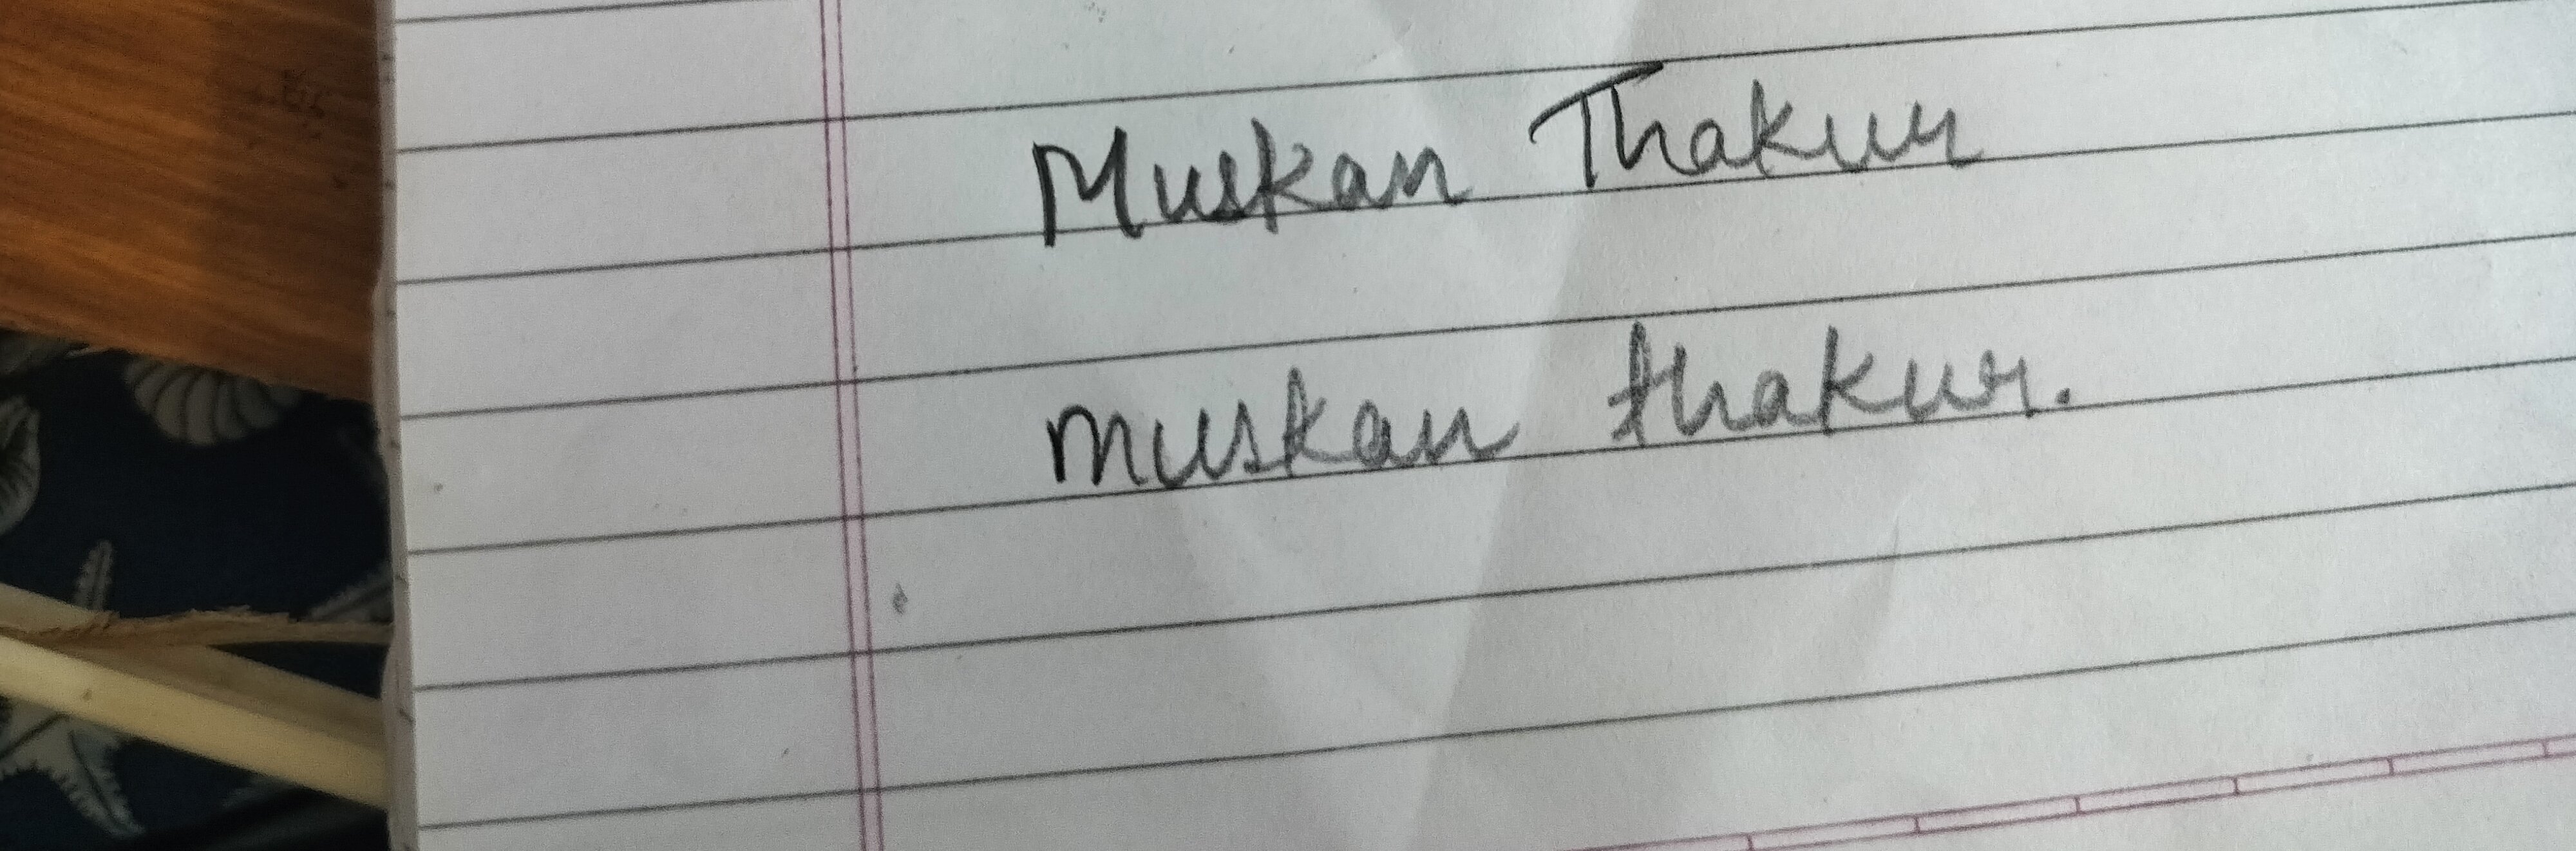 Muskan Thakur
muskan thakur.